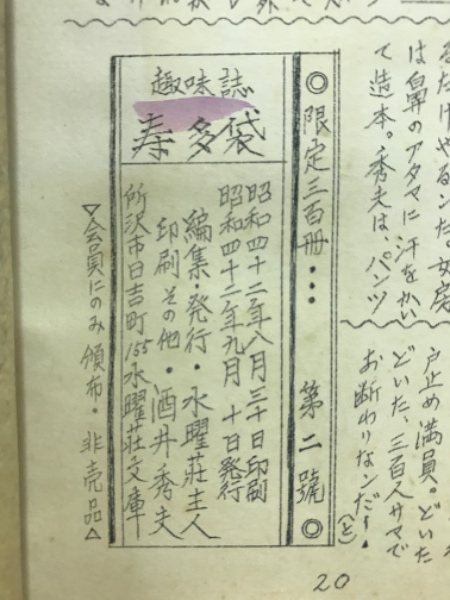 るだけやるンだ。女房
は鼻のアタマに汗をかい
て造本。秀夫は、パンツ
戸止め満員。どいた
どいた、三百人サマで
お断わりなンだー!
(と)
◎限定三百冊・・・第二號◎
趣味誌
寿多袋
昭和四十二年八月三十日印刷
昭和四十二年九月十日発行
編集・発行・水曜荘主人
印刷その他・酒井秀夫
所沢市日吉町155水曜荘文庫
▽会員にのみ頒布・非売品△
20